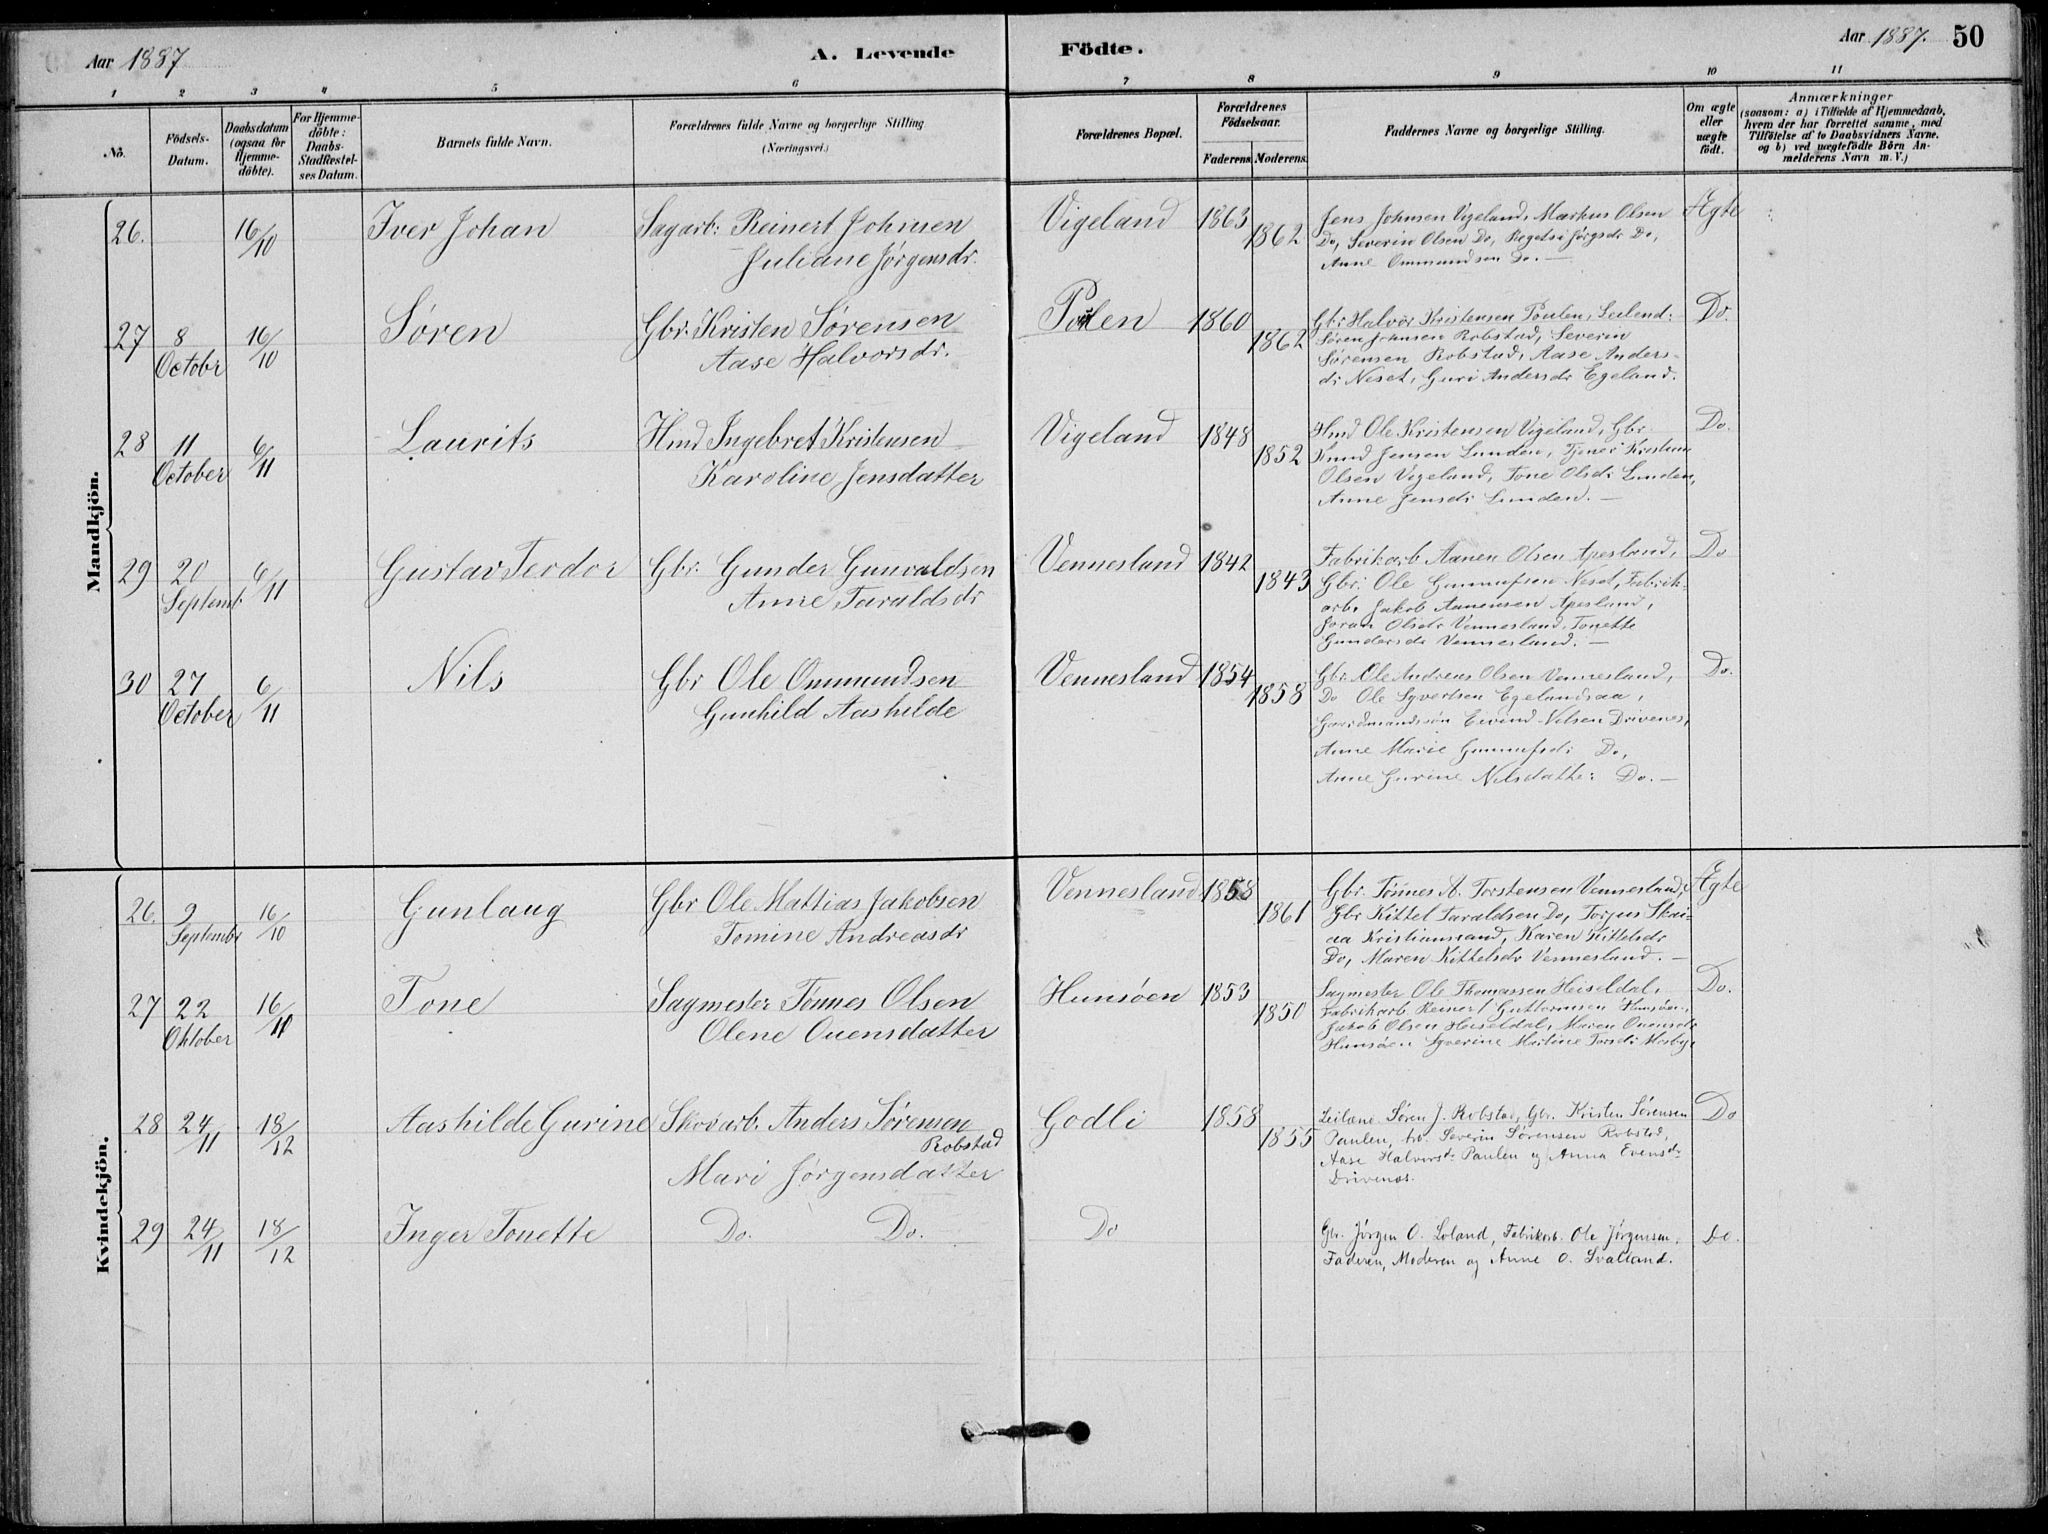 Aar 1887
A. Levende
Födte.
Aar 1887. 50
1 2 3 4 5 6 7 8 9 10 11
No.
Födsels-Datum.
Daabsdatum (ogsaa for Hjemmedöbte).
For Hjemmedöbte: Daabs-Stadfestelses Datum.
Barnets fulde Navn.
Forældrenes fulde Navne og borgerlige Stilling
(Næringsvei.)
Forældrenes Bopæl.
Forældrenes Födselsaar.
Faderens. Moderens.
Faddernes Navne og borgerlige Stilling.
Om ægte eller uægte födt.
Anmærkninger
(saasom: a) i Tilfælde af Hjemmedaab, hvem der har forrettet samme, med Tilföielse af to Daabsvidners Navne. og b) ved uægtefödte Börn Anmelderens Navn m. V.)
Mandkjön.
26. 16/10 Iver Johan Sagarb: Reinert Johnsen Vigeland 1863 Jens Johnsen Vigeland, Markus Olsen Ægte
Juliane Jörgensdr. 1862 Do, Severin Olsen Do, Jörgsdr Do,
Anne Ommundsen Do. —
27 8 October 16/10 Sören Gbr. Kristen Sörensen Poulen 1860 Gbr. Halvor Kristensen Poulen, Leilend: Do.
Aase Halvorsdr. 1862 Sören Johnsen Robstad, Severin
Sörensen Robstad, Aase Anders-
dr Neset, Guri Andersdr Egeland.
28 11 October 6/11 Laurits Hmd Ingebret Kristensen Vigeland 1848 Hmd Ole Kristensen Vigeland, Gbr. Do.
Karoline Jensdatter 1852 Knud Jensen Lunden, Tjener Kristian
Olsen Vigeland, Tone Olsdr Lunden,
Anne Jensdr Lunden. —
29 20 Septemb. 6/11 Gustav Teodor Gbr. Gunder Gunvaldsen Vennesland 1842 Fabrikarb Aanen Olsen Apesland, Do
Anne Taraldsdr 1843 Gbr: Ole Gunnufsen Neset, Fabrik-
arb. Jakob Aanensen Apesland,
Joran Olsdr Vennesland, Tonette
Gundersdr Vennesland. —
30 27 October 6/11 Nils Gbr Ole Ommundsen Vennesland 1854 Gbr. Ole Andreas Olsen Vennesland, Do.
Gunhild Aashilde 1858 Do Ole Syvertsen Egelandsaa,
Gaardmandssön Eivind Nilsen Drivenes,
Anne Marie Gunnufsdr Do,
Anne Gurine Nilsdatter Do. —
Kvindekjön.
26. 9 Septembr 16/10 Gunlaug Gbr Ole Mattias Jakobsen Vennesland 1858 Gbr. Tönnes A. Torstensen Vennesland, Ægte
Tomine Andreasdr 1861 Gbr Kittel Taraldsen Do, Torjus Skai-
aa Kristianssand, Karen Kittelsdr
Do, Maren Kittelsdr Vennesland. —
27 22 Oktober 16/10 Tone Sagmester Tönnes Olsen Hunsöen 1853 Sagmester Ole Thomassen Heiseldal, Do.
Olene Ouensdatter 1850 Fabrikarb Reinert Guttormsen Hunsöen,
Jakob Olsen Heiseldal, Maren Ouensdr
Hunsöen Syverine Martine Torsdr Mosby.
28 24/11 18/12 Aashilde Gurine Skovarb. Anders Sörensen Robstad Godli 1858 Leilænd. Sören J. Robstad, Gbr. Kristen Sörensen Do
Mari Jörgensdatter 1855 Paulen, Severin Sörensen Robstad,
Aase Halvorsdr Paulen og Anna Evensdr
Drivenes.
29 24/11 18/12 Inger Tonette Do. Do. Do Gbr. Jörgen O. Loland, Fabrikarb. Ole Jörgensen, Do.
Faderen, Moderen og Anne O. Svalland.